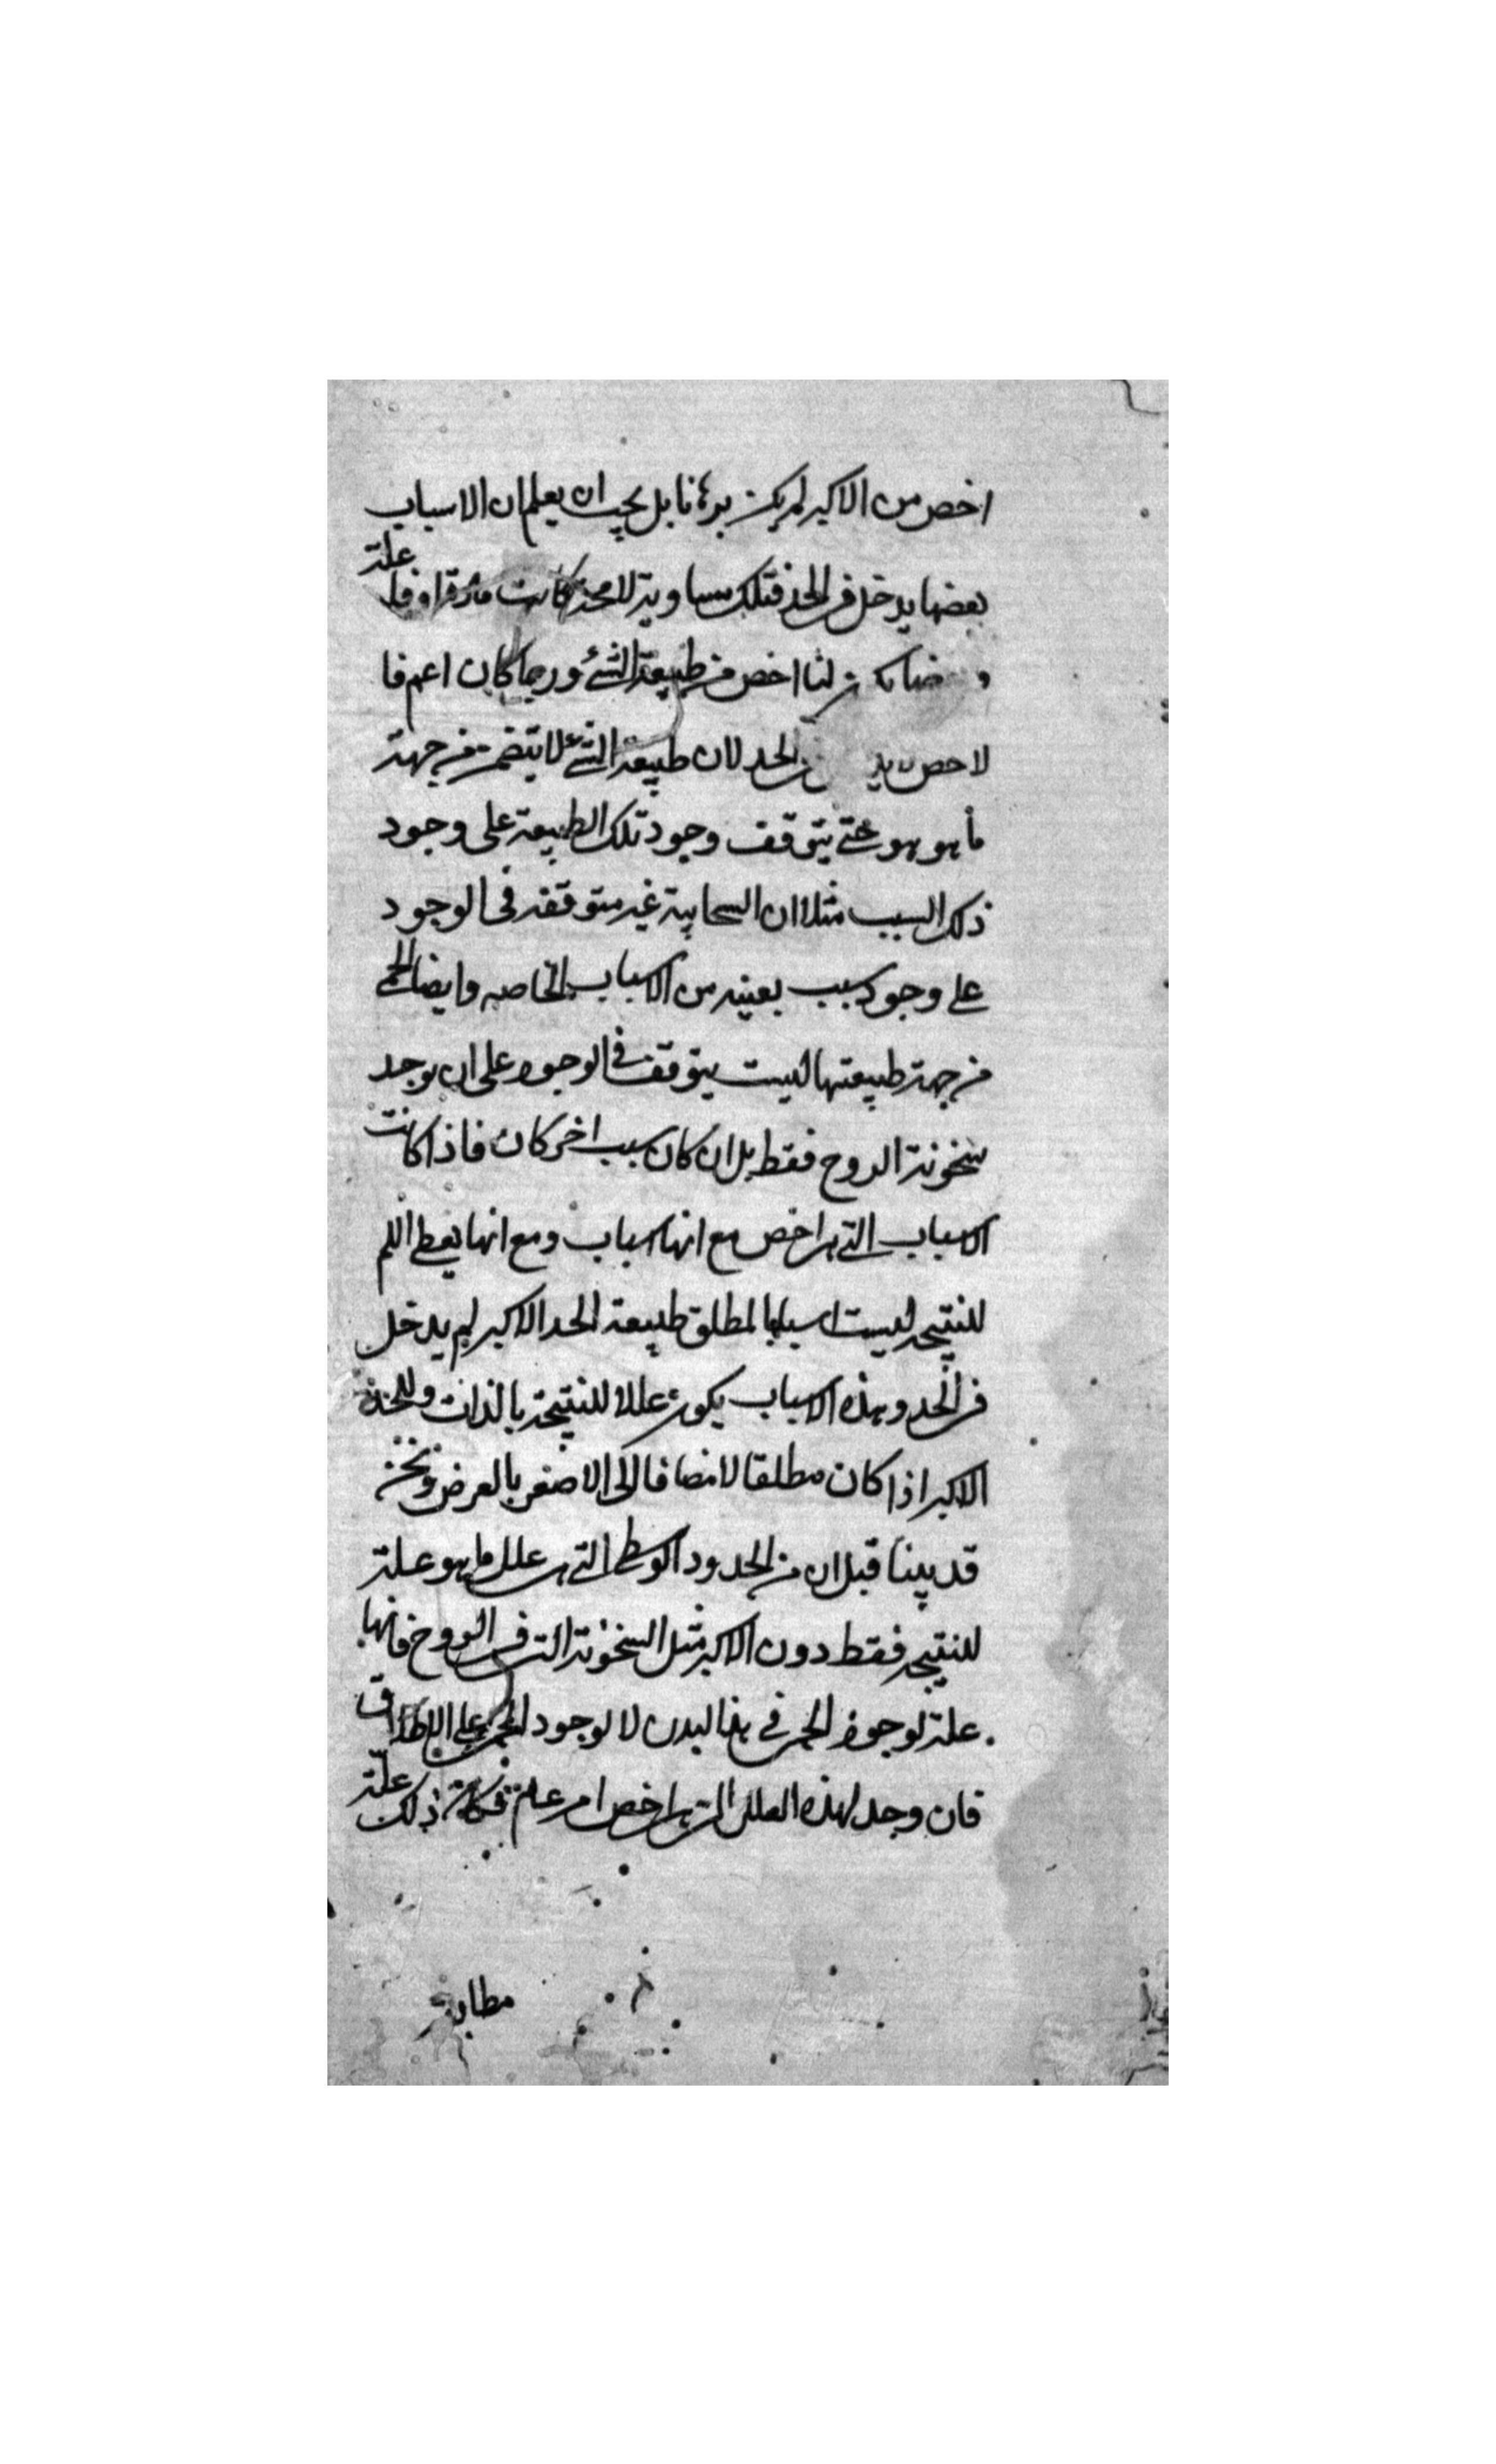 اخص من الاكبر لم يكن برهانا بل يجب ان يعلم ان الاسباب
بعضها يدخل فى الحد فتلك مساوية لا محة كانت مادة او فاعلة
و يكن لنا اخص من طبيعة الشئ وربما كان اعم فا
لاخص لا فى الحد لان طبيعة الشئ لا يتضمن من جهة
ما هو هو حتى يتوقف وجود تلك الطبيعة على وجود
ذلك السبب مثلا ان السحابية غير متوقفه فى الوجود
على وجود سبب بعينه من الاسباب الخاصه وايضا الحمى
من جهة طبيعتها ليست يتوقف فى الوجود على ان يوجد
سخونة الروح فقط بل ان كان سبب اخر كان فاذا كانت
الاسباب التى هى اخص مع انها اسباب ومع انها يعطى اللم
للنتيجه ليست اسبابا لمطلق طبيعة الحد الاكبر لم يدخل
فى الحد وهذه الاسباب يكون عللا للنتيجة بالذات وللحد
الاكبر اذا كان مطلقا لا مضافا الى الاصغر بالعرض ونحن
قد بينا قبل ان من الحدود الوسطى التى هى علل ما هو علة
للنتيجه فقط دون الاكبر مثل السخونة التى فى الروح فانها
علة لوجود الحمى فى هذا البدن لا لوجود الحمى على الاطلاق
فان وجد لهذه العلل التى هى اخص امر عام فكان ذلك علة
مطابقة